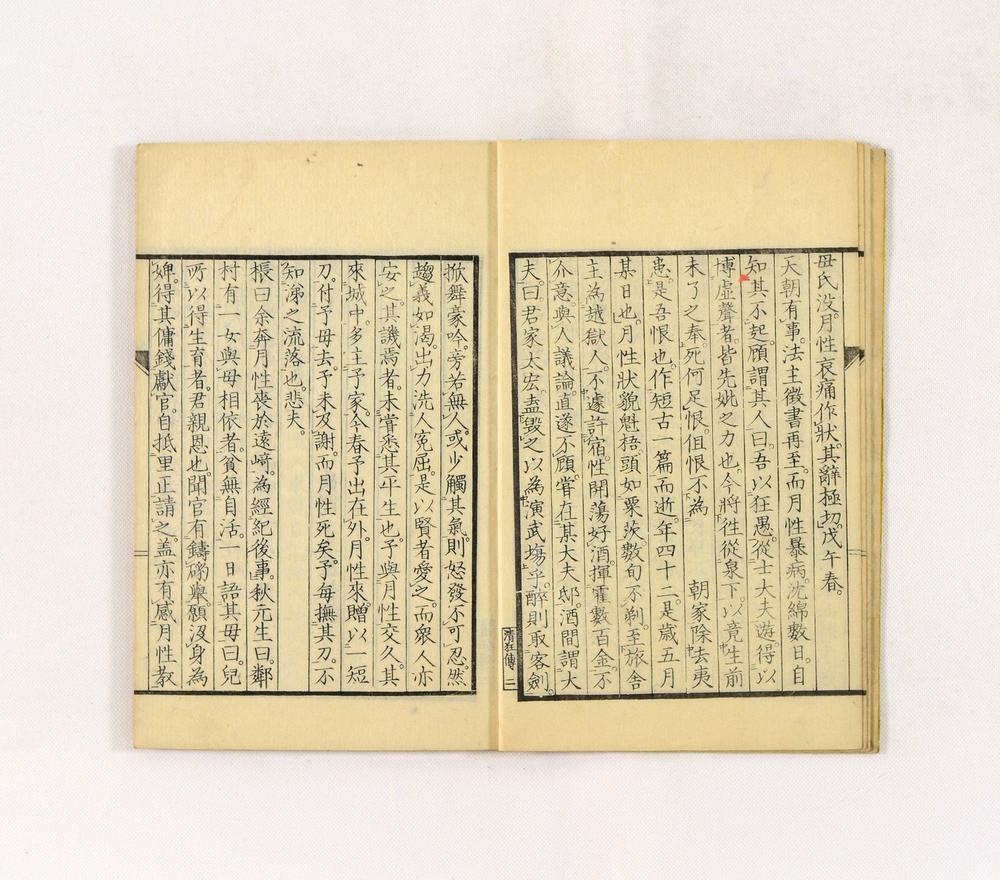 母氏没。月性哀痛作狀。其辭極切。戊午春。
天朝有事。法主徵書再至。而月性暴病。沈綿數日。自
知其不起。顧謂其人曰。吾以狂愚。從士大夫遊。得以
博虛聲者。皆先妣之力也。今將徃從泉下。以竟生前
未了之奉。死何足恨。但恨不為　朝家除去夷
患。是吾恨也。作短古一篇而逝。年四十二。是歲五月
某日也。月性狀貌魁梧。頭如栗茨。數旬不剃。至旅舍
主為越獄人。不遽許宿。性開蕩好酒。揮霍數百金。不
介意。與人議論。直遂不顧。嘗在某大夫邸。酒間謂大
夫。曰君家太宏。盍毀之以為演武塲乎。醉則取客劍。
清狂傳　二
掀舞豪吟。旁若無人。或少觸其氣。則怒發不可忍。然
趨義如渴。出力洗人冤屈。是以賢者愛之。而衆人亦
安之。其譏焉者。未嘗悉其平生也。予與月性交久。其
來城中。多主予家。今春予出在外。月性來贈以一短
刀。付予母去。予未及謝。而月性死矣。予每撫其刀。不
知涕之流落也。悲夫。
棖曰。余奔月性喪於遠崎。為經紀後事。秋元生曰。鄰
村有一女與母相依者。貧無自活。一日語其母曰。兒
所以得生育者。君親恩也。聞官有鑄礮擧。願沒身為
婢。得其傭錢獻官。自抵里正請之。盖亦有感月性教